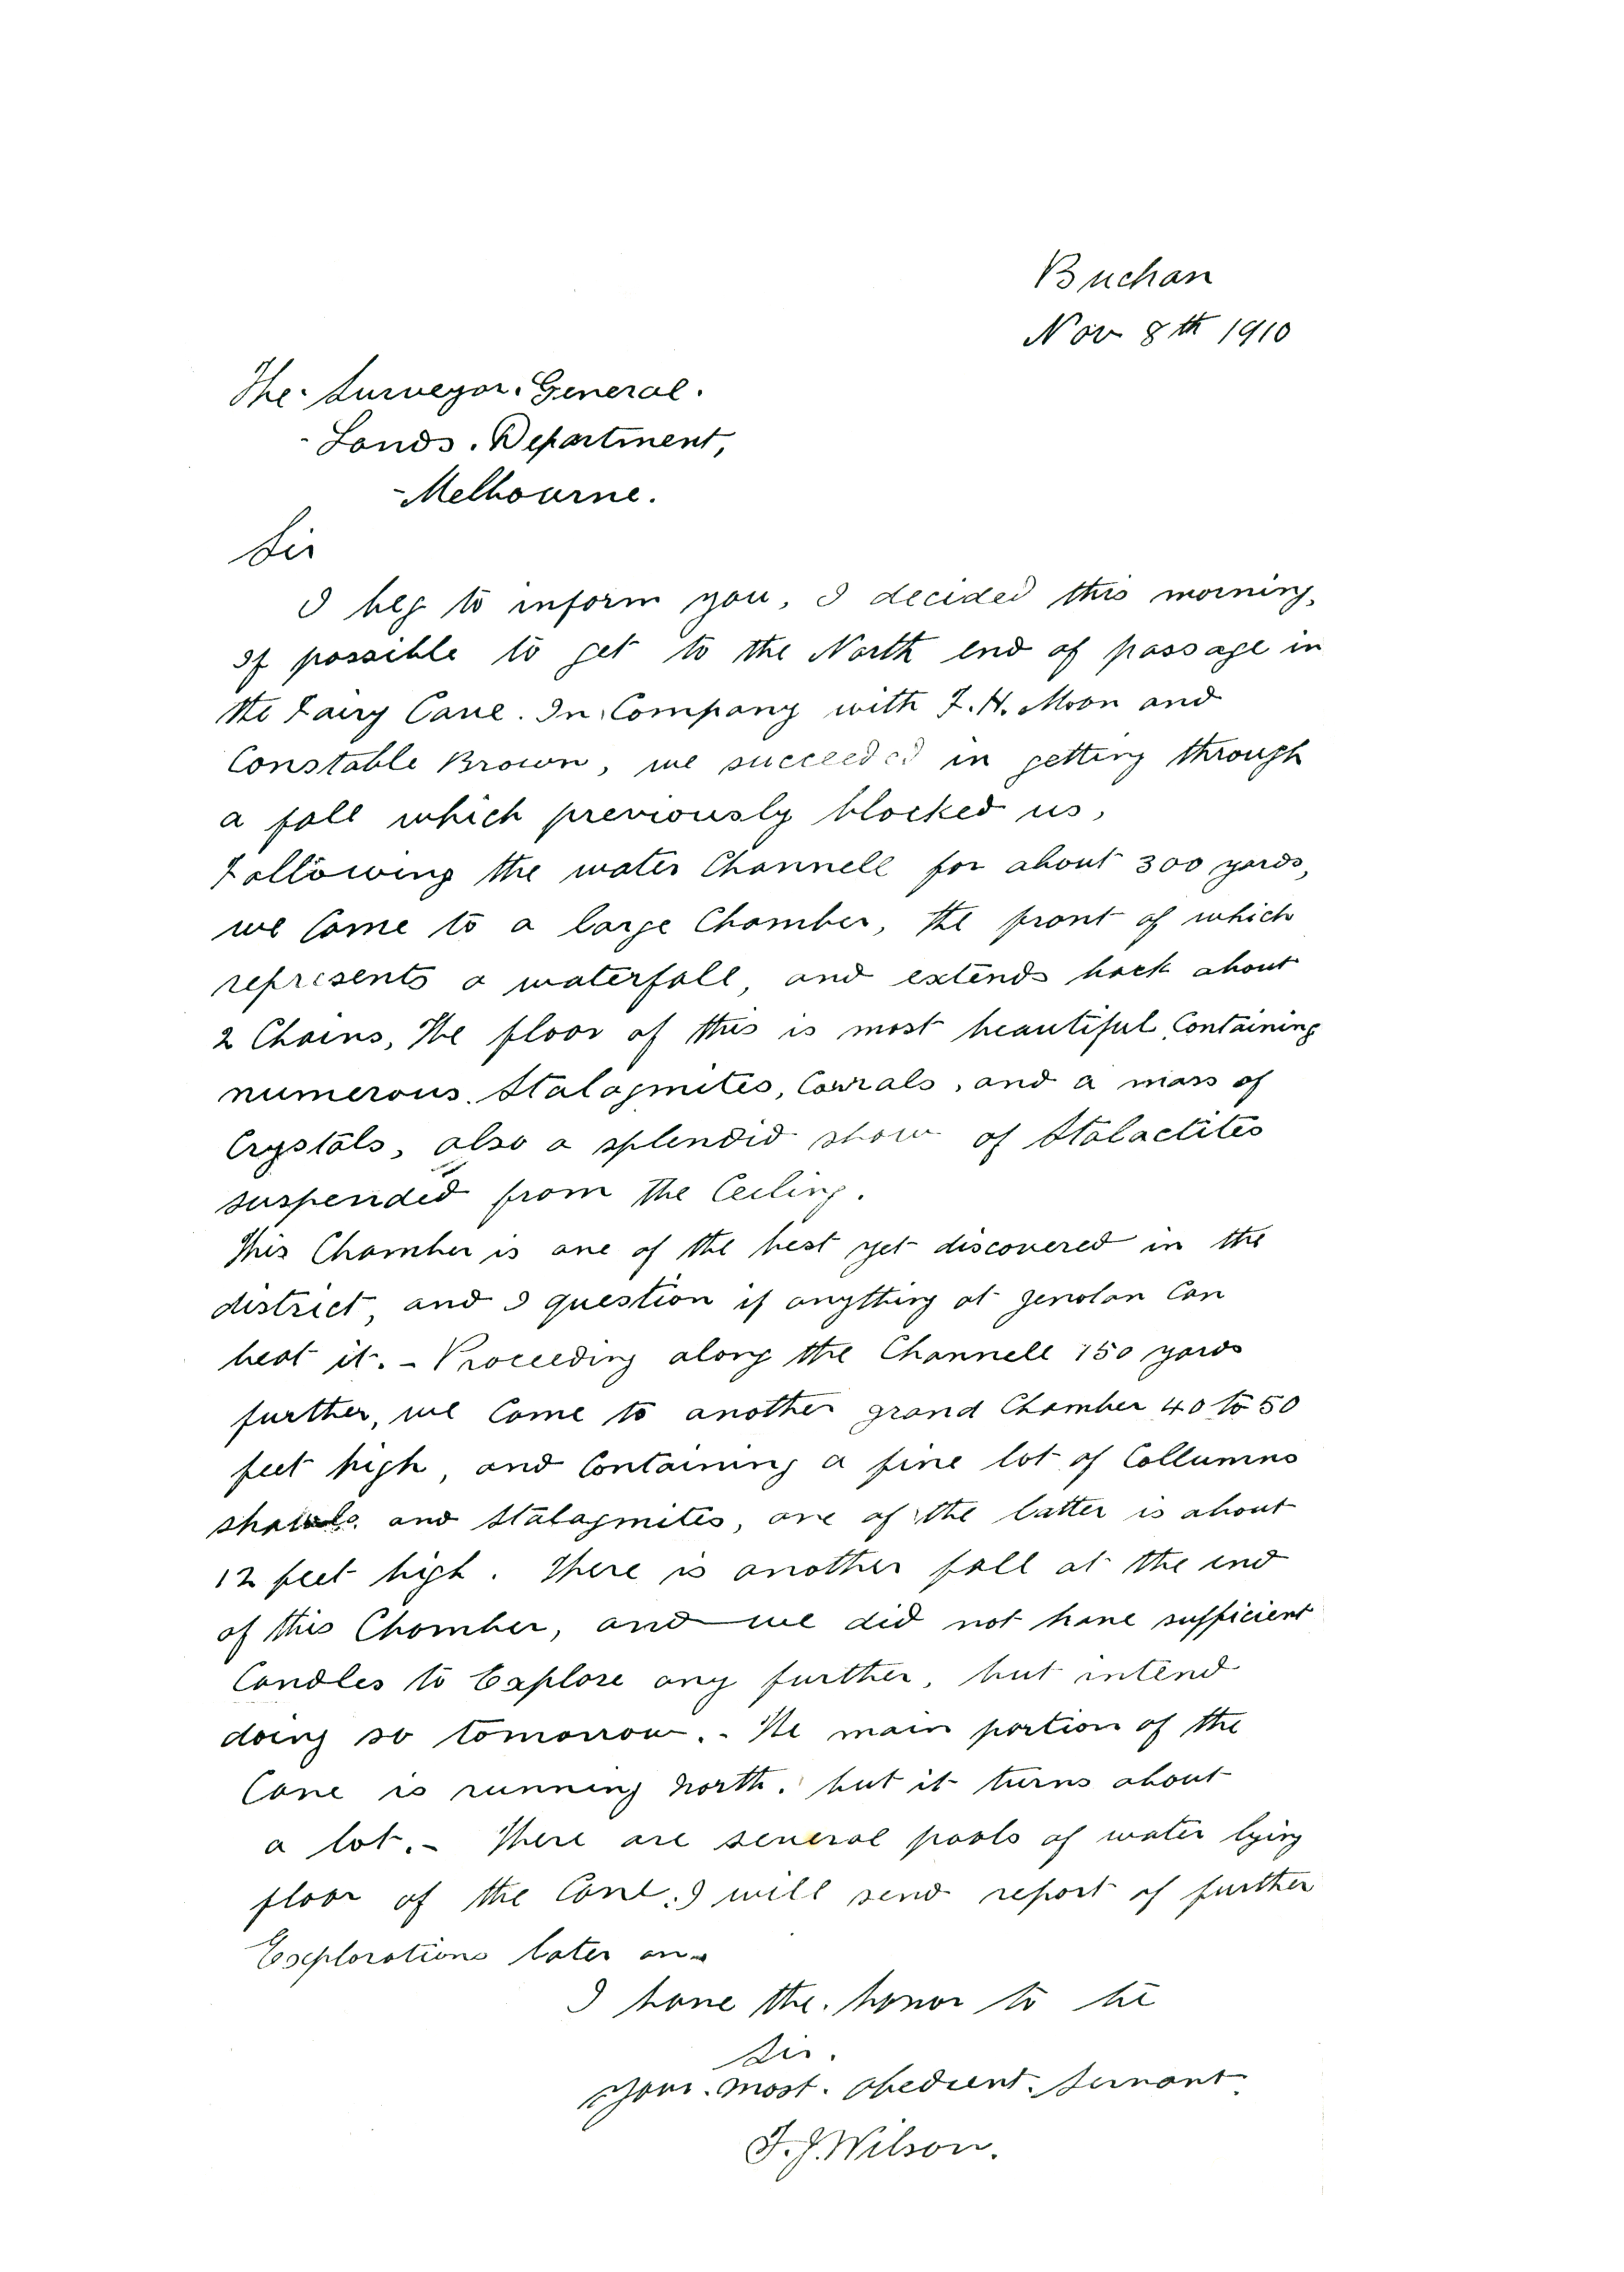 Buchan
Nov 8th 1910
The Surveyor. General.
Lands. Department,
Melbourne.
Sir
I beg to inform you, I decided this morning,
if possible to get to the North end of passage in
the Fairy Cave. In Company with F. H. Moon and
Constable Brown, we succeeded in getting through
a fall which previously blocked us,
Following the water Channell for about 300 yards,
we Come to a large Chamber, the front of which
represents a waterfall, and extends back about
2 Chains, The floor of this is most beautiful, Containing
numerous. Stalagmites, Corrals, and a mass of
Crystals, also a splendid show of Stalactites
suspended from the Ceiling.
This Chamber is one of the best yet discovered in the
district, and I question if anything at Jenolan Can
beat it. - Proceeding along the Channell 150 yards
further, we Come to another grand Chamber 40 to 50
feet high, and Containing a fine lot of Collumns
shawls. and Stalagmites, one of the latter is about
12 feet high. There is another fall at the end
of this Chamber, and we did not have sufficient
Candles to Explore any further, but intend
doing so tomorrow. - The main portion of the
Cave is running North. but it turns about
a lot. - There are several pools of water lying
floor of the Cave. I will send report of further
Explorations later on
I have the. honor to be
Sir.
Your. Most. Obedient. Servant.
F. J. Wilson.